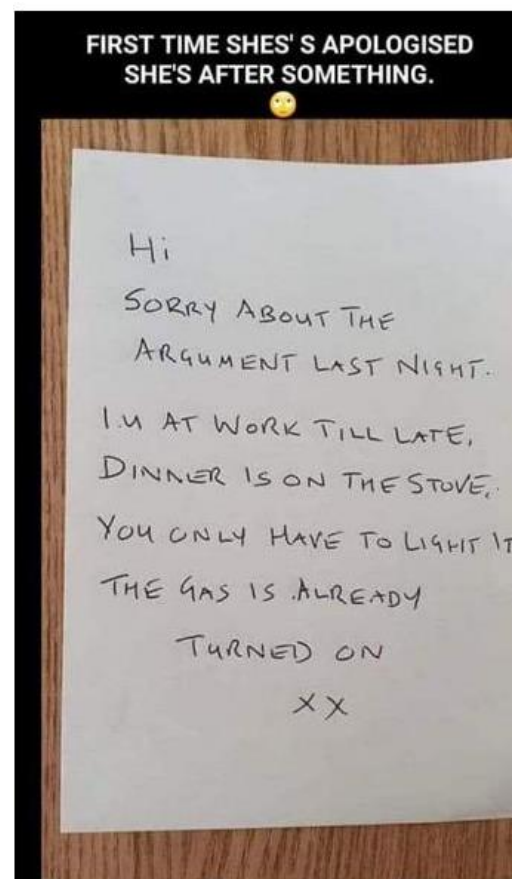 FIRST TIME SHES' S APOLOGISED
SHE'S AFTER SOMETHING.
Hi
SORRY ABOUT THE
ARGUMENT LAST NIGHT.
I.M AT WORK TILL LATE,
DINNER IS ON THE STOVE,.
YOU ONLY HAVE TO LIGHT IT
THE GAS IS ALREADY
TURNED ON
XX